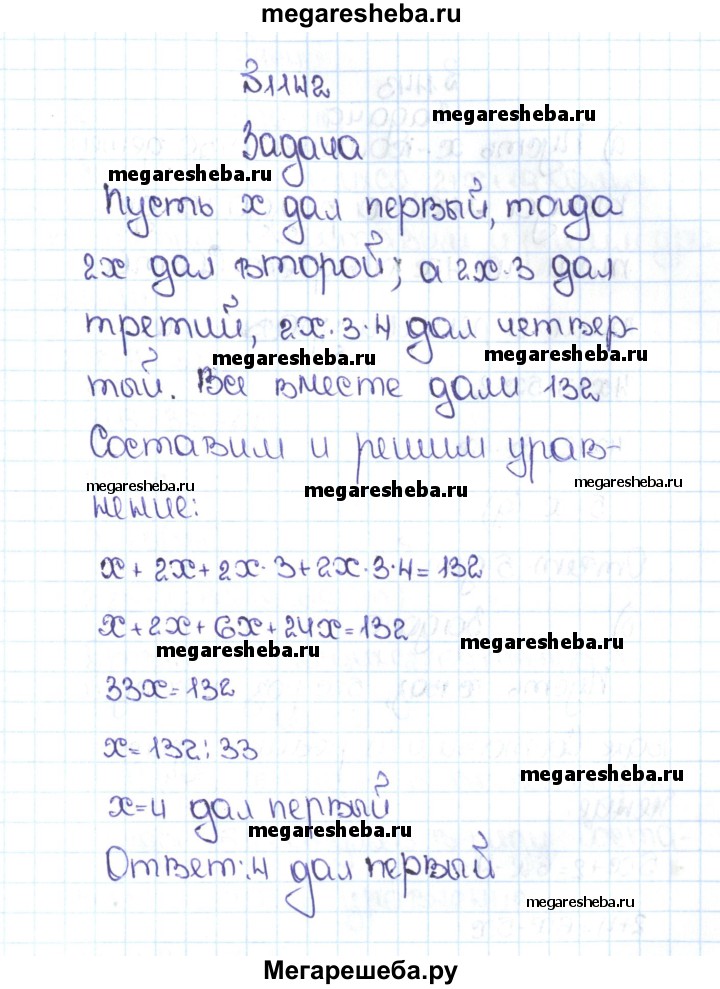 megaresheba.ru
№1142
megaresheba.ru
Задача
megaresheba.ru
Пусть x дал первый, тогда
2x дал второй, а 2x·3 дал
третий, 2x·3·4 дал четвер-
megaresheba.ru
megaresheba.ru
тый. Все вместе дали 132
Составим и решим урав-
megaresheba.ru
megaresheba.ru
megaresheba.ru
нение:
x + 2x + 2x·3 + 2x·3·4 = 132
x + 2x + 6x + 24x = 132
megaresheba.ru
megaresheba.ru
33x = 132
x = 132 : 33
megaresheba.ru
x = 4 дал первый
megaresheba.ru
Ответ: 4 дал первый
megaresheba.ru
Мегарешеба.ру